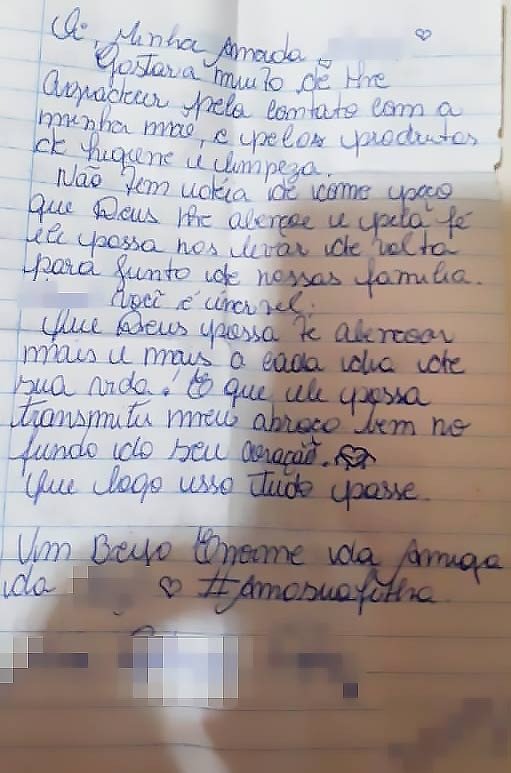 Oi, Minha Amada
Gostaria muito de lhe
Agradecer pelo contato com a
minha mãe, e pelos produtos
de higiene e limpeza.
Não tem ideia de como peço
que Deus lhe abençoe e pela fé
ele possa nos levar de volta
para junto de nossas familia.
Você é incrivel.
Que Deus possa te abencoar
mais e mais a cada dia de
sua vida. E que ele possa
transmitir meu abraço bem no
fundo do seu coração.
Que logo isso tudo passe.
Um Beijo Enorme da Amiga
da #Amosuafilha